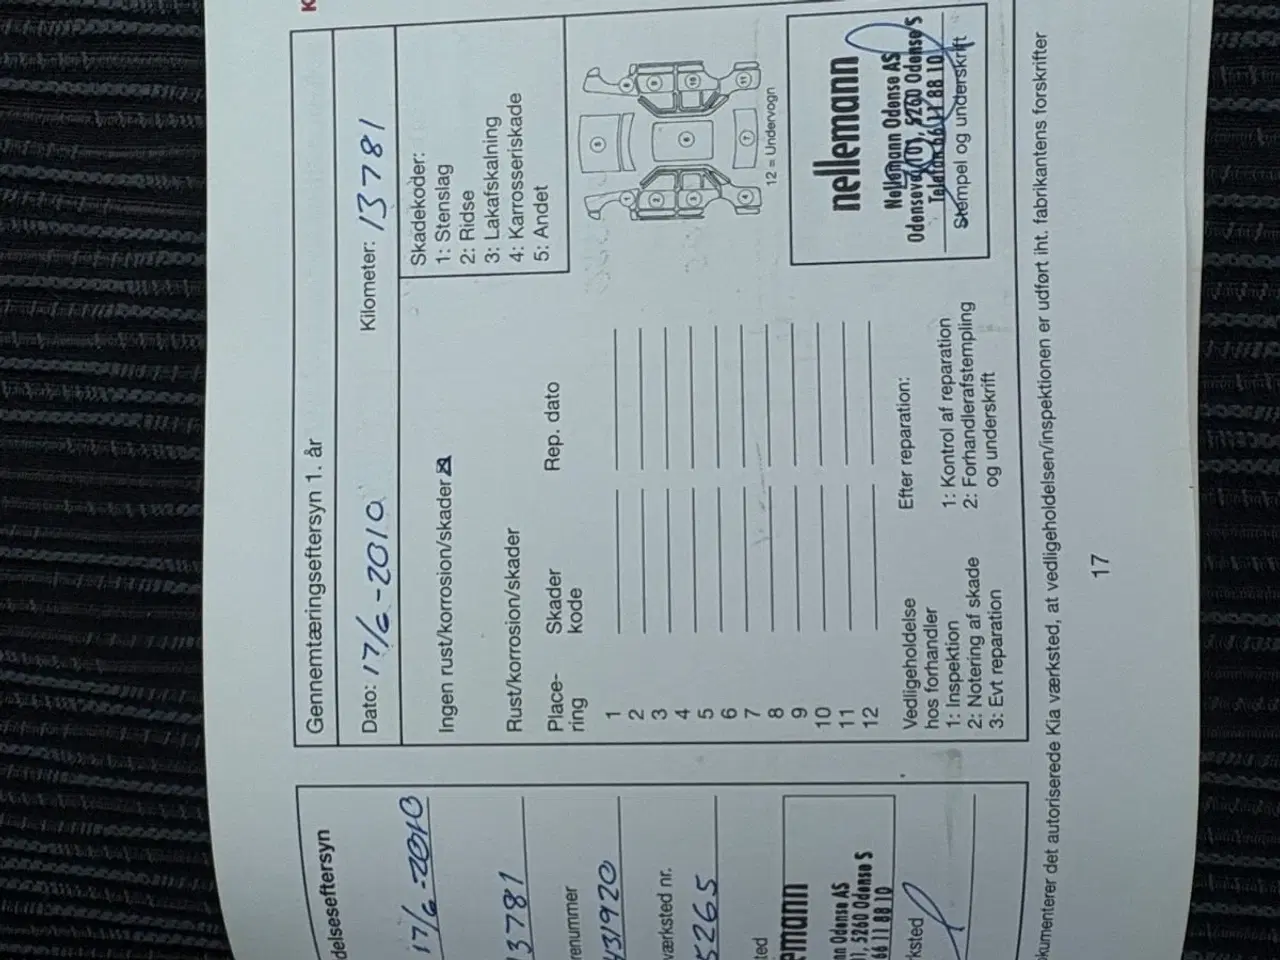 delseseftersyn
17/6-2010
13781
renummer
431920
værksted nr.
5265
ted
emann
nn Odense AS
01, 5260 Odense S
66 11 88 10
rksted
Gennemtæringseftersyn 1. år
Dato: 17/6-2010 Kilometer: 13781
Ingen rust/korrosion/skader
Rust/korrosion/skader
Skadekoder:
1: Stenslag
2: Ridse
3: Lakafskalning
4: Karrosseriskade
5: Andet
Place-
ring
Skader
kode
Rep. dato
1
2
3
4
5
6
7
8
9
10
11
12
12 = Undervogn
Vedligeholdelse
hos forhandler
1: Inspektion
2: Notering af skade
3: Evt reparation
Efter reparation:
1: Kontrol af reparation
2: Forhandlerafstempling
og underskrift
nellemann
Nellemann Odense AS
Odensevej 101, 5260 Odense S
Telefon 66 11 88 10
Stempel og underskrift
okumenterer det autoriserede Kia værksted, at vedligeholdelsen/inspektionen er udført iht. fabrikantens forskrifter
17